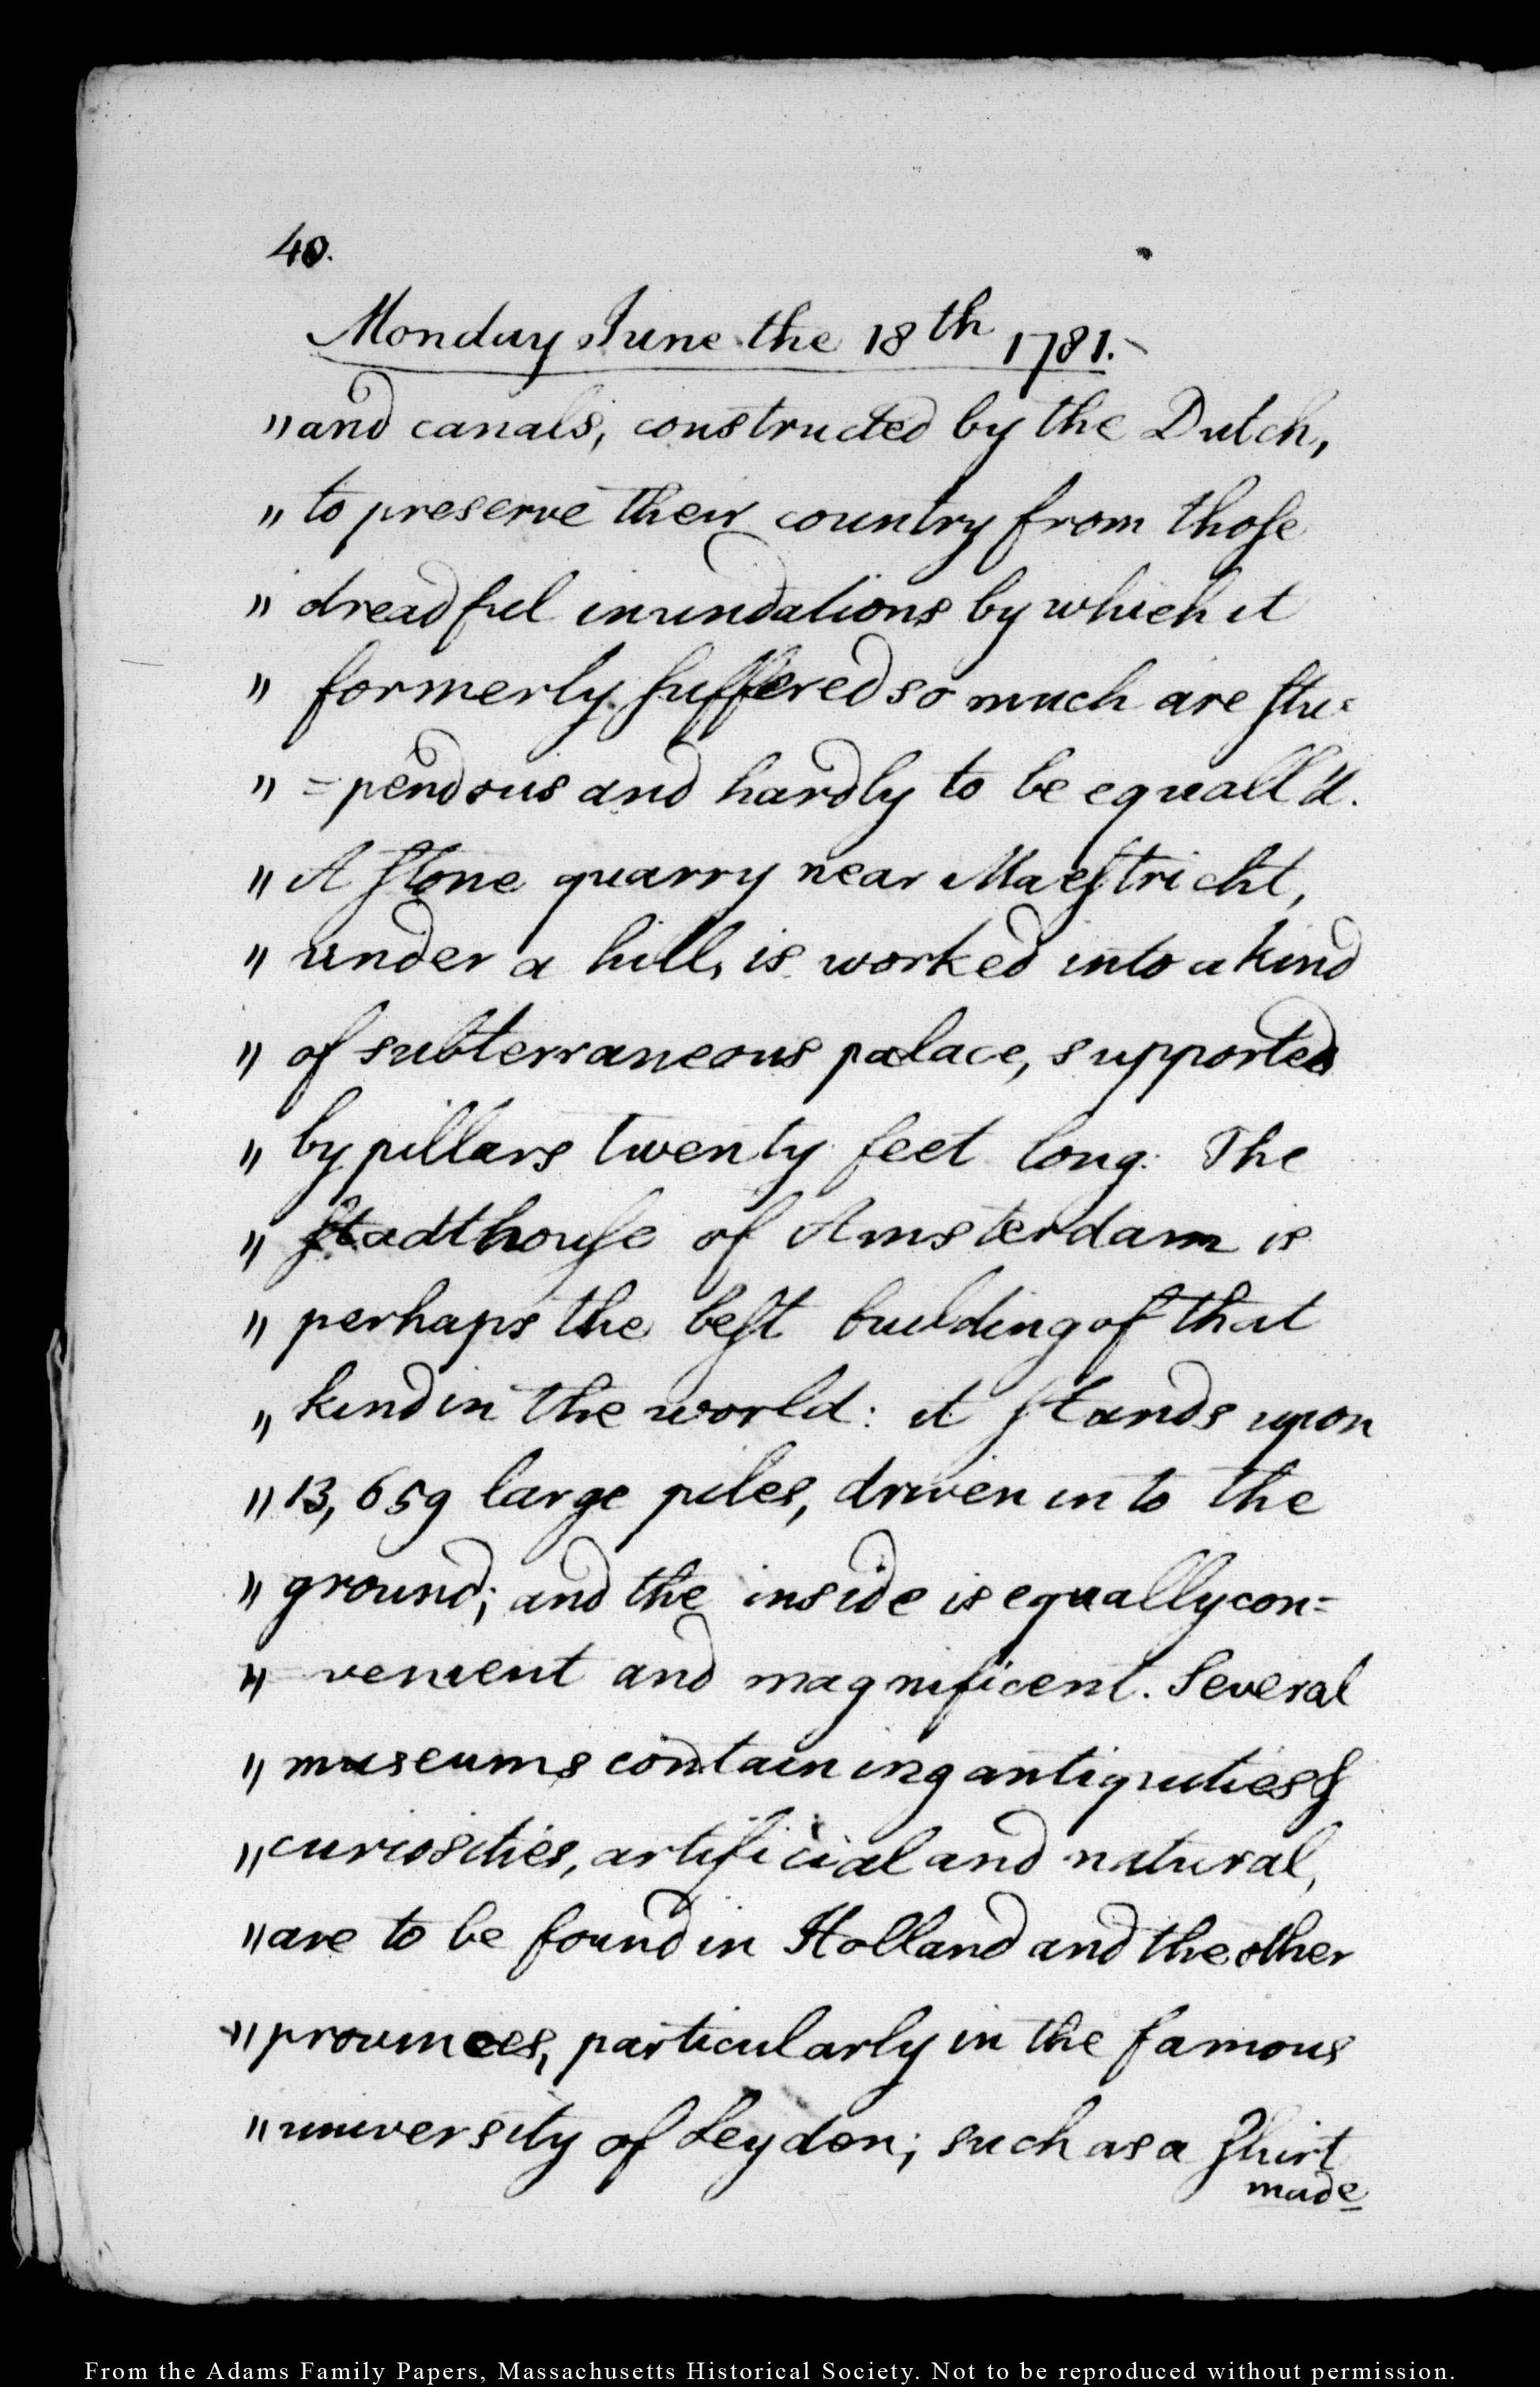 40.
Monday June the 18th 1781.-
"and canals, constructed by the Dutch,
" to preserve their country from those
" dreadful inundations by which it
" formerly suffered so much are stu=
" =pendous and hardly to be equall'd.
" A stone quarry near Maestricht,
" under a hill, is worked into a kind
" of subterraneous palace, supported
" by pillars twenty feet long: The
" stadthouse of Amsterdam is
" perhaps the best building of that
" kind in the world: it stands upon
" 13,659 large piles, driven into the
" ground; and the inside is equally con=
" =venient and magnificent. Several
" museums containing antiquities &
" curiosities, artificial and natural,
" are to be found in Holland and the other
" provinces, particularly in the famous
" university of Leyden; such as a shirt
made
From the Adams Family Papers, Massachusetts Historical Society. Not to be reproduced without permission.